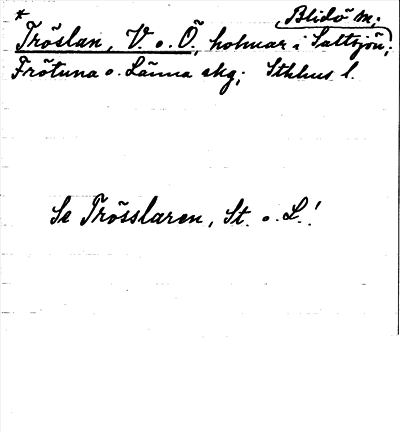 * Blidö m;
Tröslan, V. o. Ö., holmar i Saltsjön;
Frötuna o. Länna skg; Sthlms l.
Se Trösslaren, St. o. L.!